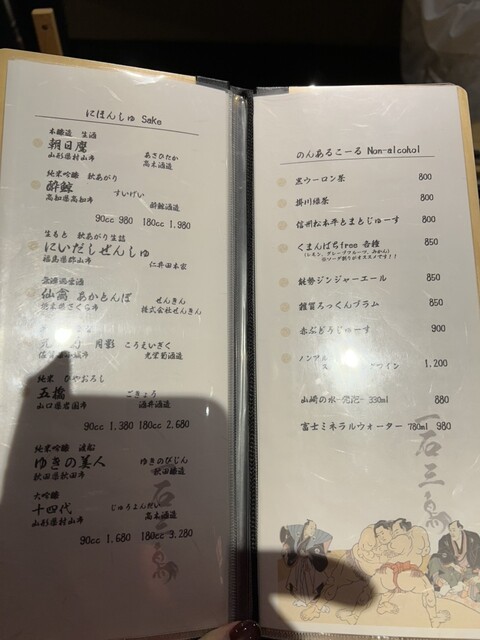 にほんしゅ Sake
本醸造 生酒
朝日鷹 あさひたか
山形県村山市 高木酒造
純米吟醸 秋あがり
酔鯨 すいげい
高知県高知市 酔鯨酒造
90cc 980 180cc 1.980
生もと 秋あがり生詰
にいだしぜんしゅ
福島県郡山市 仁井田本家
仙禽 あかとんぼ せんきん
栃木県さくら市 株式会社せんきん
月影 こうえいぎく
光栄菊酒造
純米 ひやおろし
五橋 ごきょう
山口県岩国市 酒井酒造
90cc 1.380 180cc 2.680
純米吟醸
ゆきの美人 ゆきのびじん
秋田県秋田市 秋田醸造
大吟醸
十四代 じゅうよんだい
山形県村山市 高木酒造
90cc 1.680 180cc 3.280
のんあるこーる Non-alcohol
黒ウーロン茶 800
掛川緑茶 800
信州松本平とまとじゅーす 800
くまんばちfree 各種 850
(レモン、グレープフルーツ、みかん)
能勢ジンジャーエール 850
雑賀ろっくんプラム 850
赤ぶどうじゅーす 900
ノンアル
ワイン 1,200
山崎の水-発泡- 330ml 880
富士ミネラルウォーター 780ml 980
石三鳥